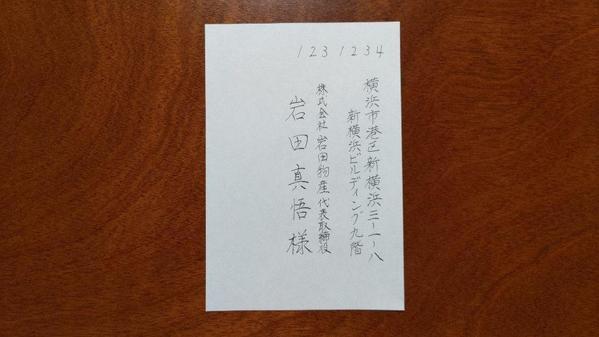 1231234
横浜市港区新横浜三-一-八
新横浜ビルディング九階
株式会社岩田物産代表取締役
岩田真悟様